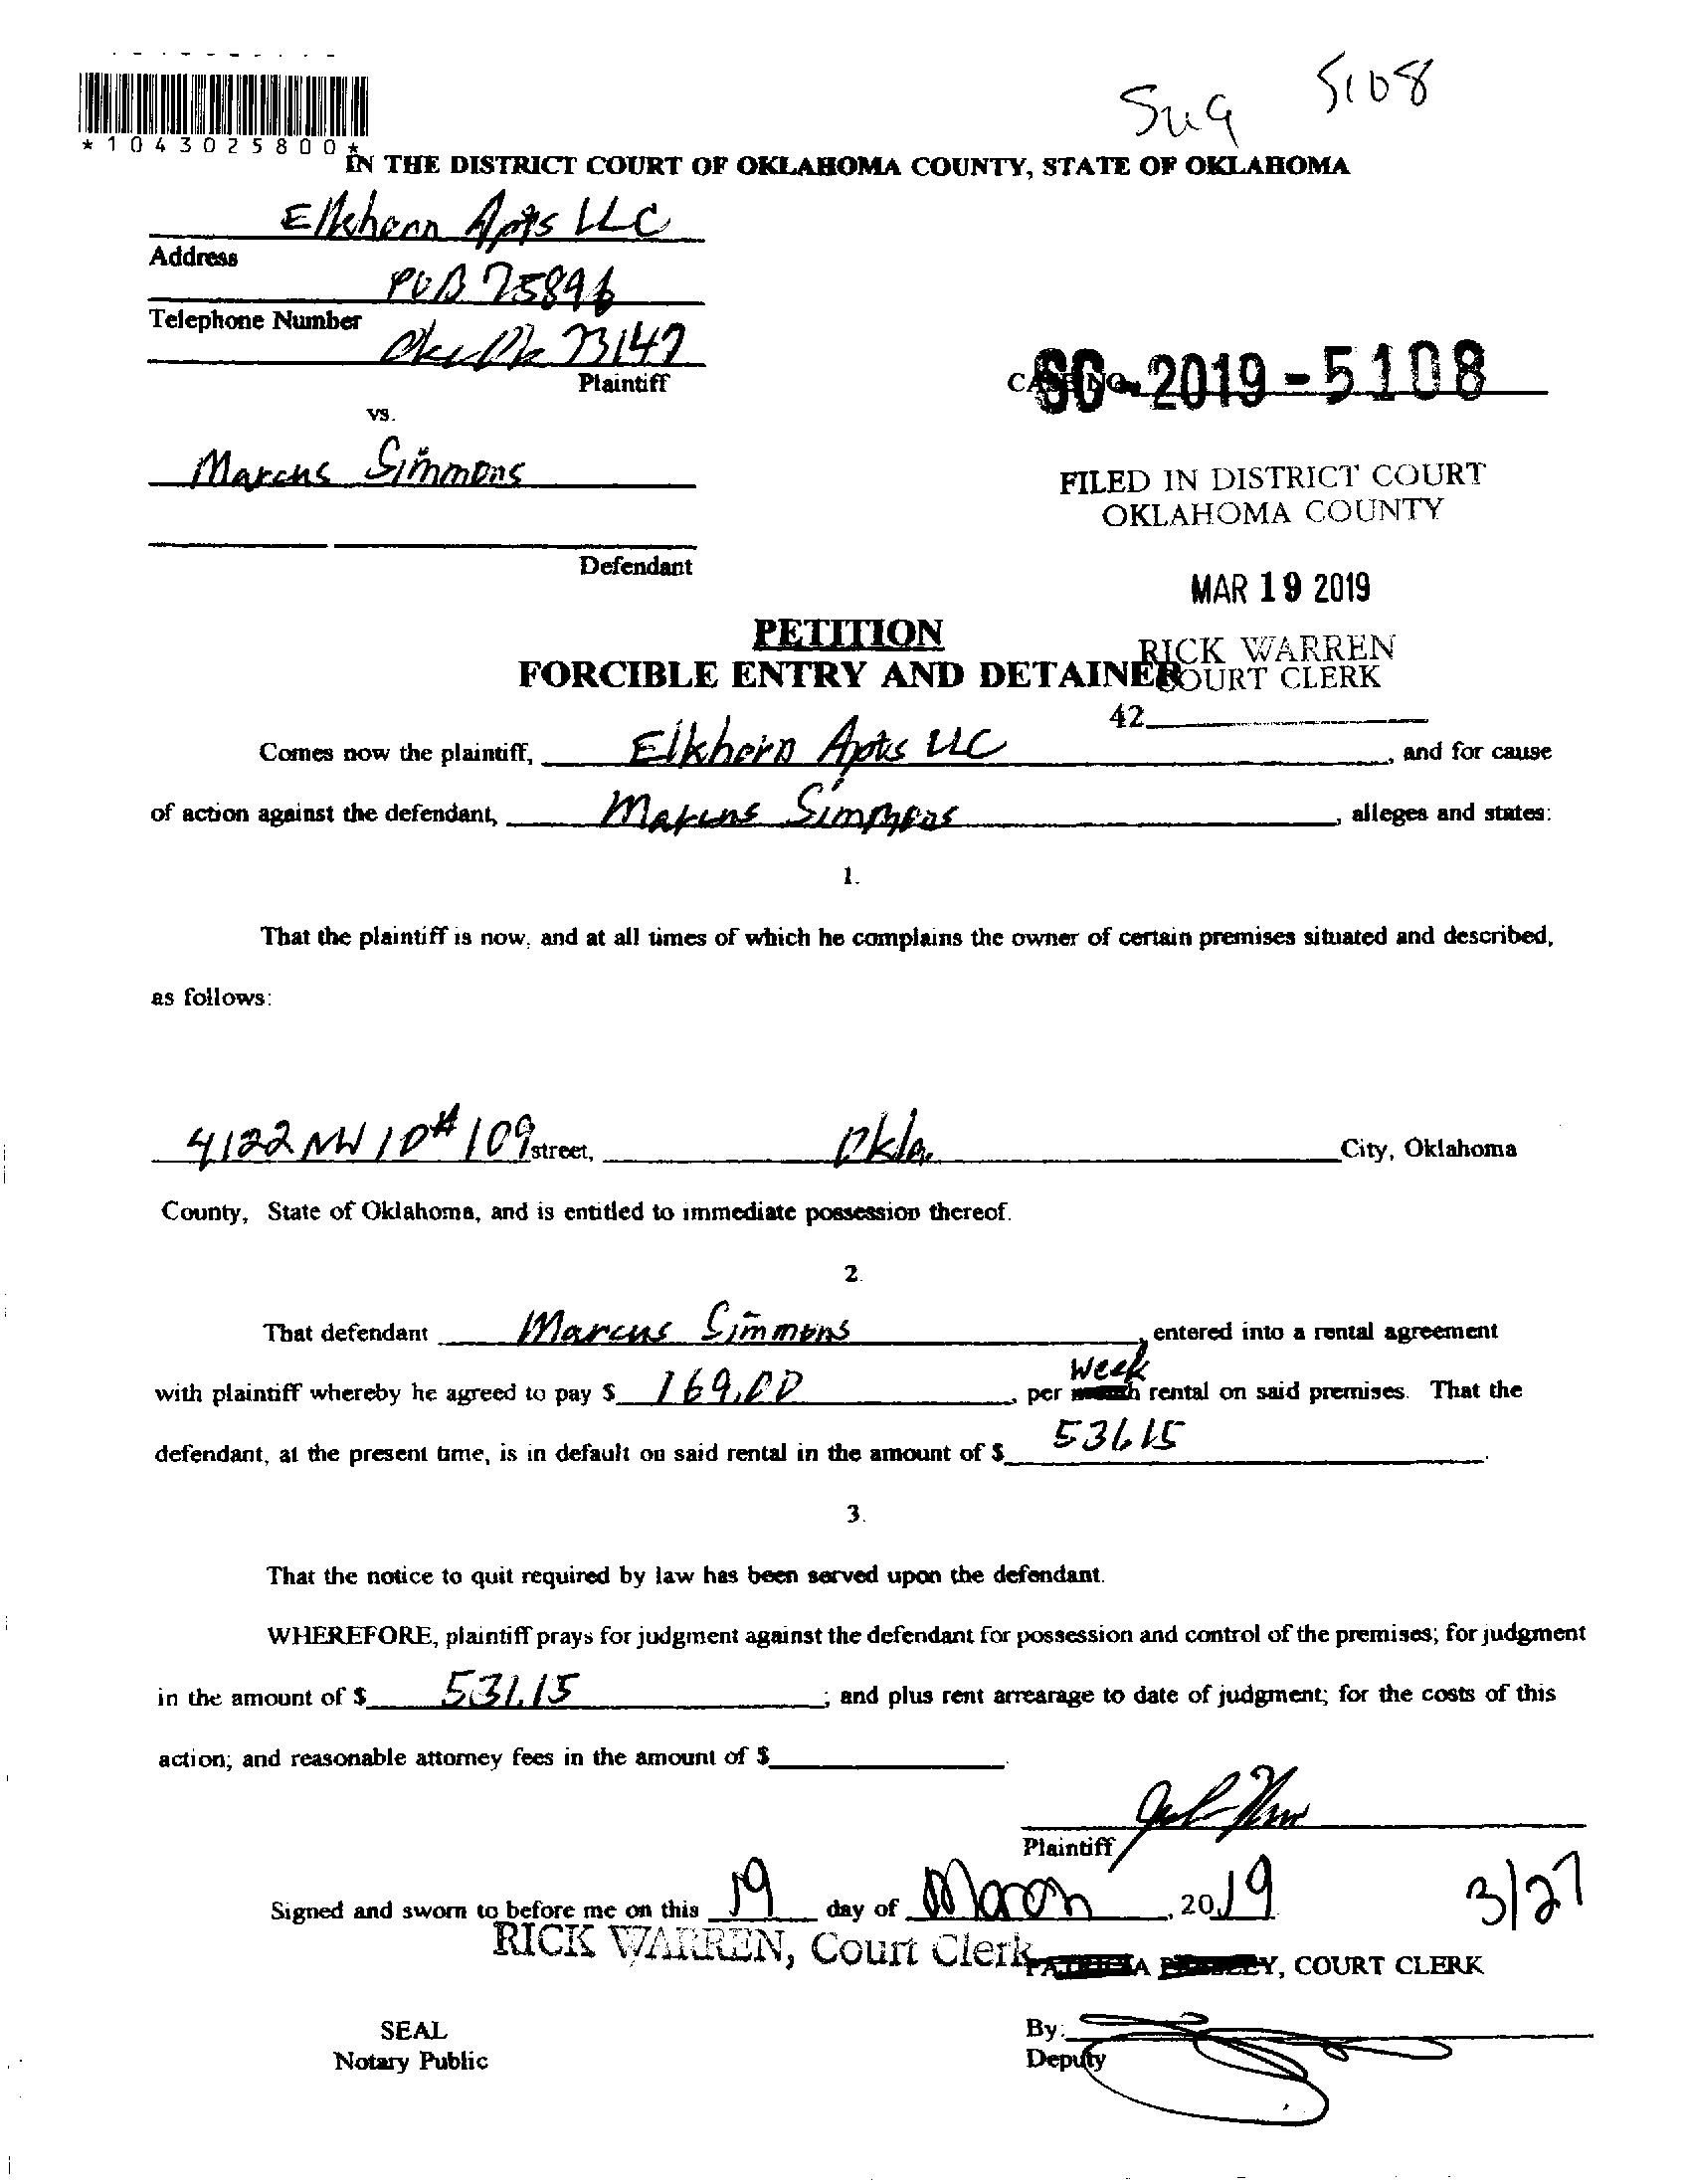 Sug 5108
*1043025800*
IN THE DISTRICT COURT OF OKLAHOMA COUNTY, STATE OF OKLAHOMA
Elkhorn Apts LLC
Address
POB 75896
Telephone Number
Okc Ok 73147
Plaintiff
CASE NO. SC-2019-5108
vs.
Marcus Simmons
FILED IN DISTRICT COURT
OKLAHOMA COUNTY
Defendant
MAR 19 2019
PETITION
RICK WARREN
FORCIBLE ENTRY AND DETAINER
COURT CLERK
42
Comes now the plaintiff, Elkhorn Apts LLC, and for cause
of action against the defendant, Marcus Simmons, alleges and states:
1.
That the plaintiff is now, and at all times of which he complains the owner of certain premises situated and described,
as follows:
4122 NW 10 # 109 street, Okla. City, Oklahoma
County, State of Oklahoma, and is entitled to immediate possession thereof.
2.
That defendant Marcus Simmons, entered into a rental agreement
week
with plaintiff whereby he agreed to pay $ 169.00, per month rental on said premises. That the
defendant, at the present time, is in default on said rental in the amount of $ 531.15.
3.
That the notice to quit required by law has been served upon the defendant.
WHEREFORE, plaintiff prays for judgment against the defendant for possession and control of the premises; for judgment
in the amount of $ 531.15; and plus rent arrearage to date of judgment; for the costs of this
action; and reasonable attorney fees in the amount of $.
Plaintiff
Signed and sworn to before me on this 19 day of March, 2019 3/27
RICK WARREN, Court Clerk
, COURT CLERK
SEAL
By:
Notary Public
Deputy